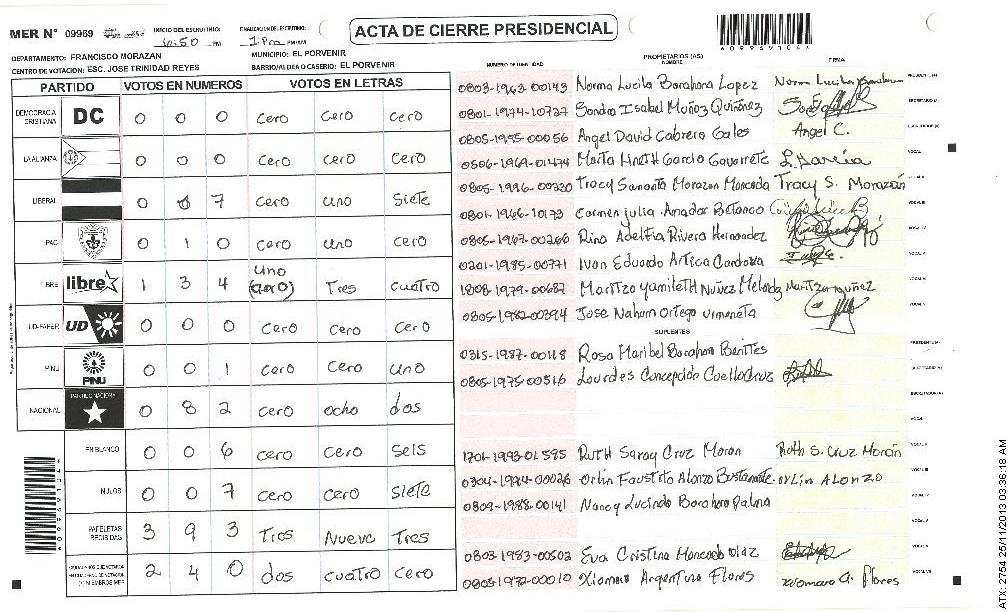 MER N° 09969 INICIO DEL ESCRUTINIO: 4:50 PM FINALIZACION DEL ESCRUTINIO: 1:Pm PM/AM
ACTA DE CIERRE PRESIDENCIAL
DEPARTAMENTO: FRANCISCO MORAZAN MUNICIPIO: EL PORVENIR
CENTRO DE VOTACION: ESC. JOSE TRINIDAD REYES BARRIO/ALDEA O CASERIO: EL PORVENIR
NUMERO DE IDENTIDAD PROPIETARIOS (AS) NOMBRE FIRMA
PARTIDO VOTOS EN NUMEROS VOTOS EN LETRAS
DEMOCRACIA CRISTIANA DC 0 0 0 cero cero cero
LA ALIANZA 0 0 0 cero cero cero
LIBERAL 0 7 cero uno siete
PAC 0 1 0 cero uno cero
LIBRE libre 1 3 4 uno (cero) Tres cuatro
UD-FAPER UD 0 0 0 cero cero cero
PINU PINU 0 0 1 cero cero uno
NACIONAL PARTIDO NACIONAL 0 8 2 cero ocho dos
EN BLANCO 0 0 6 cero cero seis
NULOS 0 0 7 cero cero siete
PAPELETAS RECIBIDAS 3 9 3 Tres Nueve Tres
2 4 0 dos cuatro cero
0803-1963-00143 Norma Lucila Barahona Lopez Norma Lucila Barahona
0801-1974-10727 Sandra Isabel Muñoz Quiñonez
0805-1995-00056 Angel David Cabrera Gales Angel C.
0506-1969-01474 Marta Lineth Garcia Gavarrete L. Garcia
0805-1996-00330 Tracy Samanta Morazan Moncada Tracy S. Morazán
0801-1966-10173 Carmen julia Amador Betanco
0805-1967-00266 Rina Adelfia Rivera Hernandez
0201-1985-00771 Ivan Eduardo Artica Cardoza
1808-1979-00687 Maritza Yamileth Nuñez Melendez Maritza nuñez
0805-1982-00394 Jose Nahum Ortega
SUPLENTES
0315-1987-00118 Rosa Maribel Barahona Benites
0805-1975-00516 Lourdes Concepción Coello Cruz
1701-1993-01595 Ruth Saray Cruz Moran Ruth S. Cruz Morán
0304-1994-00026 Orlin Faustito Alonzo Bustamante Orlin Alonzo
0809-1988-00141 Nancy Lucinda Barahona Palma
0803-1983-00502 Eva Cristina Moncada Diaz
0805-1972-00010 Xiomara Argentina Flores Xiomara A. Flores
ATX: 2754 25/11/2013 03:36:18 AM